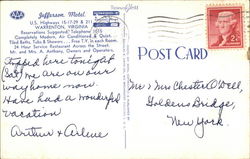 Jefferson Motel
U.S. Highways 15-17-29 & 211
WARRENTON, VIRGINIA
Reservations Suggested Telephone 1055
Completely Modern, Air Conditioned & Quiet
Tiled Baths, Tubs & Showers . . Free T.V. in each Room.
24 Hour Service Restaurant Across the Street.
Mr. and Mrs. A. Anthony, Owners and Operators.
Stopped here tonight
But we are on our
way home now
Have had a wonderful
vacation
Arthur & Arlene
POST CARD
2¢
Mr & Mrs Chester Odell,
Goldens Bridge,
New York.